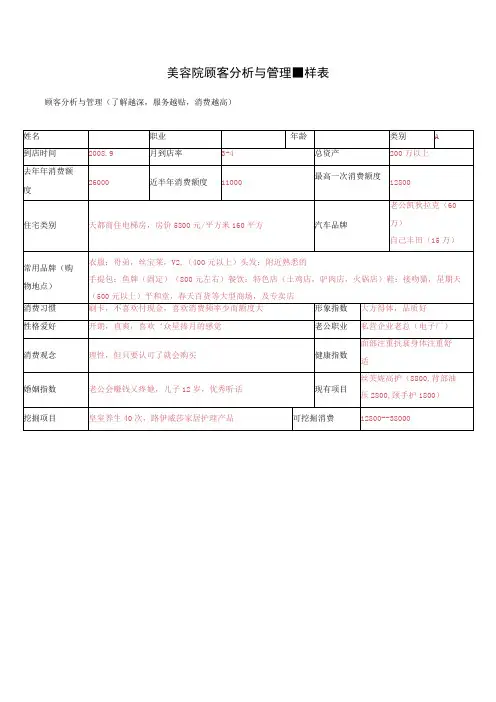 美容院顾客分析与管理■样表
顾客分析与管理（了解越深，服务越贴，消费越高）
姓名 职业 年龄 类别 A
到店时间 2003.9 月到店率 3-4 总资产 200万以上
去年年消费额度 26000 近半年消费额度 11000 最高一次消费额度 12800
住宅类别 天都商住电梯房，房价5800元/平方米160平方 汽车品牌
老公凯狄拉克（60
万）
自己丰田（15万）
常用品牌（购
物地点）
衣服：哥弟，丝宝莱，VZ，（400元以上）头发：附近熟悉的
手提包：鱼牌（固定）（800元左右）餐饮：特色店（土鸡店，驴肉店，火锅店）鞋：接吻猫，星期天
（500元以上）平和堂，春天百货等大型商场，及专卖店
消费习惯 刷卡，不喜欢付现金，喜欢消费频率少而额度大 形象指数 大方得体，品质好
性格爱好 开朗，直爽，喜欢‘众星捧月的感觉 老公职业 私营企业老总（电子厂）
消费观念 理性，但只要认可了就会购买 健康指数
面部注重抗衰身体注重舒
适
婚姻指数 老公会赚钱又疼她，儿子12岁，优秀听话 现有项目
丝芙妮高护（8800,背部油
压2800,颈手护1800）
挖掘项目 皇室养生40次，路伊威莎家居护理产品 可挖掘消费 12800--38000